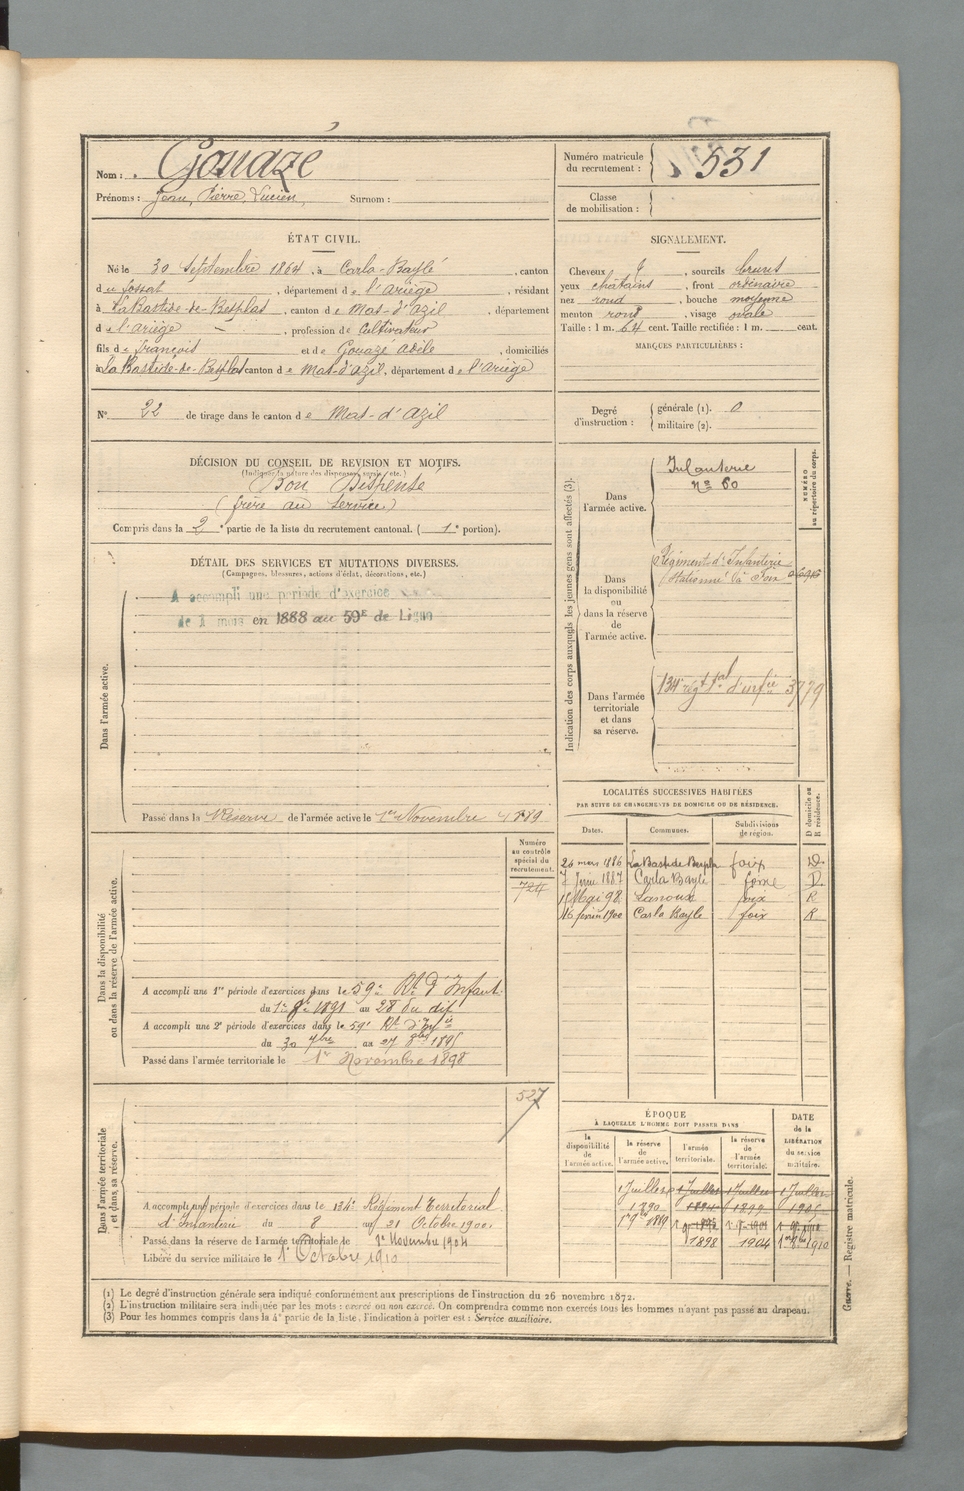 Nom : Gouazé
Prénoms : Jean, Pierre, Lucien, Surnom :
Numéro matricule du recrutement : 531
Classe de mobilisation :
ÉTAT CIVIL.
Né le 30 Septembre 1864, à Carla-Baylé, canton
du fossat, département de l'ariège, résidant
à La Bastide-de-Besplas, canton de Mas-d'azil, département
de l'ariège, profession de Cultivateur
fils de françois et de Gouazé adèle, domiciliés
à La Bastide-de-Besplas canton de Mas-d'azil, département de l'ariège
N° 22 de tirage dans le canton de Mas-d'azil
SIGNALEMENT.
Cheveux, sourcils bruns
yeux châtains, front ordinaire
nez rond, bouche moyenne
menton rond, visage ovale
Taille : 1 m. 64 cent. Taille rectifiée : 1 m. cent.
MARQUES PARTICULIÈRES :
Degré d'instruction : générale (1). 0
militaire (2).
DÉCISION DU CONSEIL DE REVISION ET MOTIFS.
(Indiquer la nature des dispenses, sursis, etc.)
Bon Dispensé
(frère au service)
Compris dans la 2e partie de la liste du recrutement cantonal. (1e portion).
DÉTAIL DES SERVICES ET MUTATIONS DIVERSES.
(Campagnes, blessures, actions d'éclat, décorations, etc.)
Dans l'armée active.
A accompli une période d'exercice
de 1 mois en 1888 au 59E de Ligne
Passé dans la Réserve de l'armée active le 1er Novembre 1889
Indication des corps auxquels les jeunes gens sont affectés (3).
NUMÉRO au répertoire du corps.
Dans l'armée active.
Infanterie
n° 60
Dans la disponibilité ou dans la réserve de l'armée active.
Régiment d'Infanterie
Stationné à Foix
Dans l'armée territoriale et dans sa réserve.
134e régt tal d'infie 3779
LOCALITÉS SUCCESSIVES HABITÉES
PAR SUITE DE CHANGEMENTS DE DOMICILE OU DE RÉSIDENCE.
Dates. Communes. Subdivisions de région. D domicile ou R résidence.
26 mars 1886 La Bastide Besplas foix D.
7 1887 Carla Bayle D.
15 Mai 98 Lanoux foix R
16 février 1900 Carla Bayle foix R
Dans la disponibilité ou dans la réserve de l'armée active.
Numéro au contrôle spécial du recrutement.
724
A accompli une 1re période d'exercices dans le 59e Rt d'Infant.
du 1er 1891 au 28 du dit
A accompli une 2e période d'exercices dans le 59e Rt d'Infie
du 30 7bre au 27 8bre 1895
Passé dans l'armée territoriale le 1er Novembre 1898
Dans l'armée territoriale et dans sa réserve.
527
A accompli une période d'exercices dans le 134e Régiment Territorial
d'Infanterie du 8 au 21 Octobre 1900
Passé dans la réserve de l'armée territoriale le 1er Novembre 1904
Libéré du service militaire le 1er Octobre 1910
ÉPOQUE
À LAQUELLE L'HOMME DOIT PASSER DANS
la disponibilité de l'armée active. la réserve de l'armée active. l'armée territoriale. la réserve de l'armée territoriale.
DATE de la LIBÉRATION du service militaire.
1 Juillet 1 Juillet 1 Juillet 1 Juillet
1890 1894 1899 1905
1898 1904 1910
(1) Le degré d'instruction générale sera indiqué conformément aux prescriptions de l'instruction du 26 novembre 1872.
(2) L'instruction militaire sera indiquée par les mots : exercé ou non exercé. On comprendra comme non exercés tous les hommes n'ayant pas passé au drapeau.
(3) Pour les hommes compris dans la 4e partie de la liste, l'indication à porter est : Service auxiliaire.
Guerre. — Registre matricule.